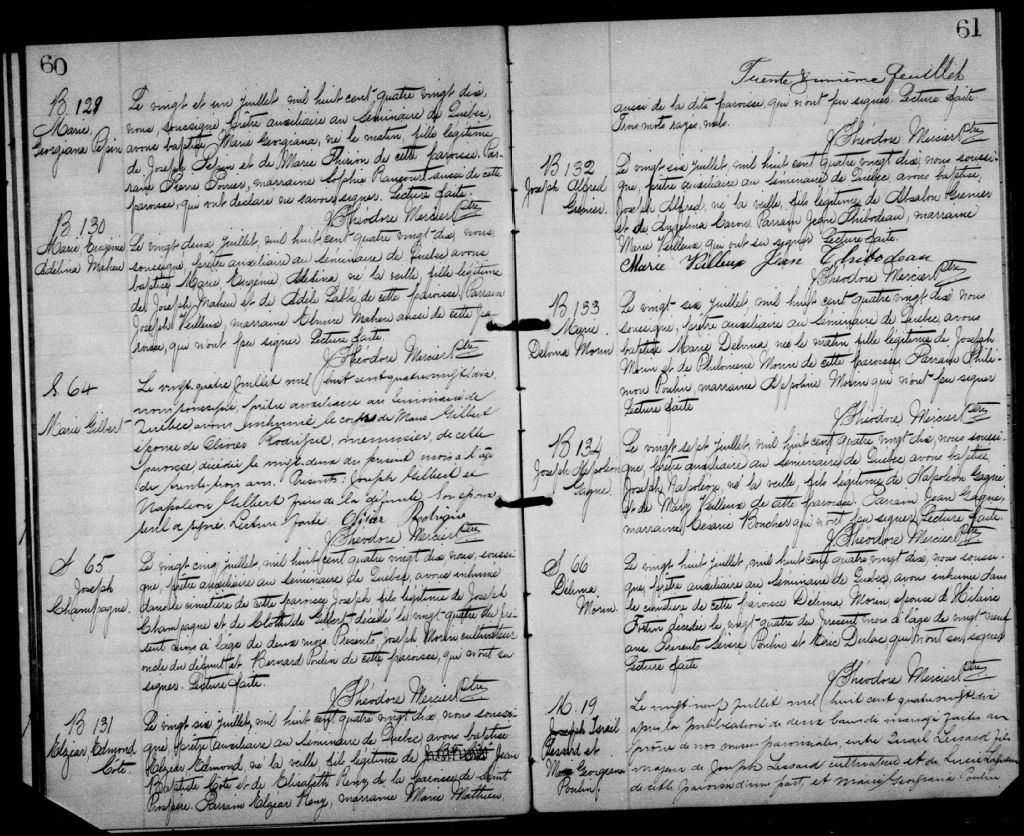 60
B 129
Marie
Georgiana Pepin
Le vingt et un juillet mil huit cent quatre vingt dix,
nous, soussigné, prêtre auxiliaire au Séminaire de Québec,
avons baptisé Marie Georgiana, née le matin, fille légitime
de Joseph Pepin et de Marie de cette paroisse. Par-
rain Pierre Poirier, marraine Sophie Rancourt aussi de cette
paroisse, qui ont déclaré ne savoir signer. Lecture faite.
J Théodore Mercier Ptre
B 130
Marie Eugénie
Adelina Maheu
Le vingt deux juillet, mil huit cent quatre vingt dix, nous,
soussigné, prêtre auxiliaire au Séminaire de Québec avons
baptisé Marie Eugénie Adelina née la veille, fille légitime
de Joseph Maheu et de Adèle Labbé de cette paroisse. Parrain
Joseph Veilleux, marraine Elmire Maheu aussi de cette pa-
roisse, qui n'ont pu signer. Lecture faite.
J Théodore Mercier Ptre
S. 64
Marie Gilbert
Le vingt-quatre Juillet mil huit cent quatre vingt dix
nous soussigné, prêtre auxiliaire au Séminaire de
Québec avons inhumé le corps de Marie Gilbert
épouse de Olivier Rodrigue, menuisier, de cette
paroisse décédée le vingt-deux du présent mois à l'âge
de trente trois ans. Présents: Joseph Gilbert et
Napoléon Gilbert frères de la défunte. Son époux
seul a signé. Lecture faite. Olivier Rodrigue
J Théodore Mercier Ptre
S 65
Joseph
Champagne.
Le vingt cinq juillet, mil huit cent quatre vingt dix, nous, soussi-
gné, prêtre auxiliaire au Séminaire de Québec, avons inhumé
dans le cimetière de cette paroisse Joseph fils légitime de Joseph
Champagne et de Clothilde Gilbert décédé le vingt-quatre du pré-
sent mois à l'âge de deux mois. Présents Joseph Morin cultivateur
oncle du défunt et Bernard Poulin de cette paroisse, qui n'ont su
signer. Lecture faite.
J Théodore Mercier Ptre
B 131
Elzéar, Edmond
Coté
Le vingt six juillet, mil huit cent quatre vingt dix nous soussi-
gné, prêtre auxiliaire au Séminaire de Québec avons baptisé
Elzéar Edmond, né la veille fils légitime de Jean
Baptiste Coté et de Elisabeth Kenz de la paroisse de Saint
Prospère. Parrain Elzéar Kenz, marraine Marie Mathieu
61
Trente & unième feuillet
aussi de la dite paroisse, qui n'ont pu signer. Lecture faite
Trois mots rayés, nuls.
J Théodore Mercier Ptre
B 132
Joseph Alfred
Grenier.
Le vingt six juillet, mil huit cent quatre vingt dix, nous soussi-
gné, prêtre auxiliaire au Séminaire de Québec avons baptisé,
Joseph Alfred, né la veille, fils légitime de Absalon Grenier
et de Angelina Caron. Parrain Jean Thibodeau, marraine
Marie Veilleux, qui ont su signer. Lecture faite.
Marie Veilleux Jean Thibodeau
J Théodore Mercier Ptre
B 133
Marie
Delvina Morin
Le vingt six juillet, mil huit cent quatre vingt dix nous
soussigné, prêtre auxiliaire au Séminaire de Québec, avons
baptisé Marie Delvina née le matin fille légitime de Joseph
Morin et de Philomene Morin de cette paroisse. Parrain Phile-
mon Poulin marraine Appoline Morin qui n'ont pu signer
Lecture faite
J Théodore Mercier Ptre
B 134
Joseph Napoléon
Gagné.
Le vingt sept juillet, mil huit cent quatre vingt dix, nous soussi-
gné, prêtre auxiliaire au Séminaire de Québec avons baptisé
Joseph, Napoléon, né la veille, fils légitime de Napoléon Gagné
et de Mary Veilleux de cette paroisse. Parrain Jean Gagné,
marraine Césarie Boucher qui n'ont pu signer. Lecture faite.
J Théodore Mercier Ptre
S 66
Délima
Morin
Le vingt huit juillet, mil huit cent quatre vingt dix, nous soussi-
gné, prêtre auxiliaire au Séminaire de Québec, avons inhumé dans
le cimetière de cette paroisse Délima Morin, épouse d'Hilaire
Fortin décédée le vingt quatre du présent mois à l'âge de vingt neuf
ans Présents Sévère Poulin et Eric Dulac qui n'ont su signer
Lecture faite
J Théodore Mercier Ptre
M. 19
Joseph Israil
Lessard et
Marie Georgiana
Poulin.
Le vingt neuf Juillet mil huit cent quatre vingt dix
après la publication de deux bans de mariage faites au
prône de nos messes paroissiales entre Israël Lessard fils
majeur de Joseph Lessard cultivateur et de Lucie
de cette paroisse d'une part, et Marie Georgiana Poulin